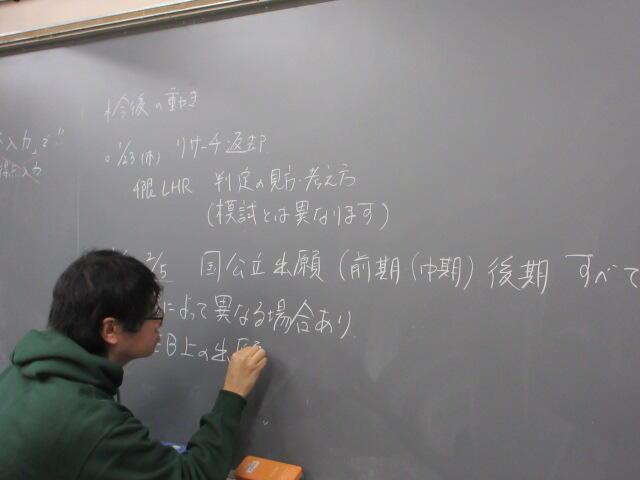 入力」で!!
得点入力
*今後の動き
○1/23(木) リサーチ返却
LHR 判定の見方・考え方
(模試とは異なります)
2/5 国公立出願 (前期(中期) 後期 すべて
によって異なる場合あり
上の出願